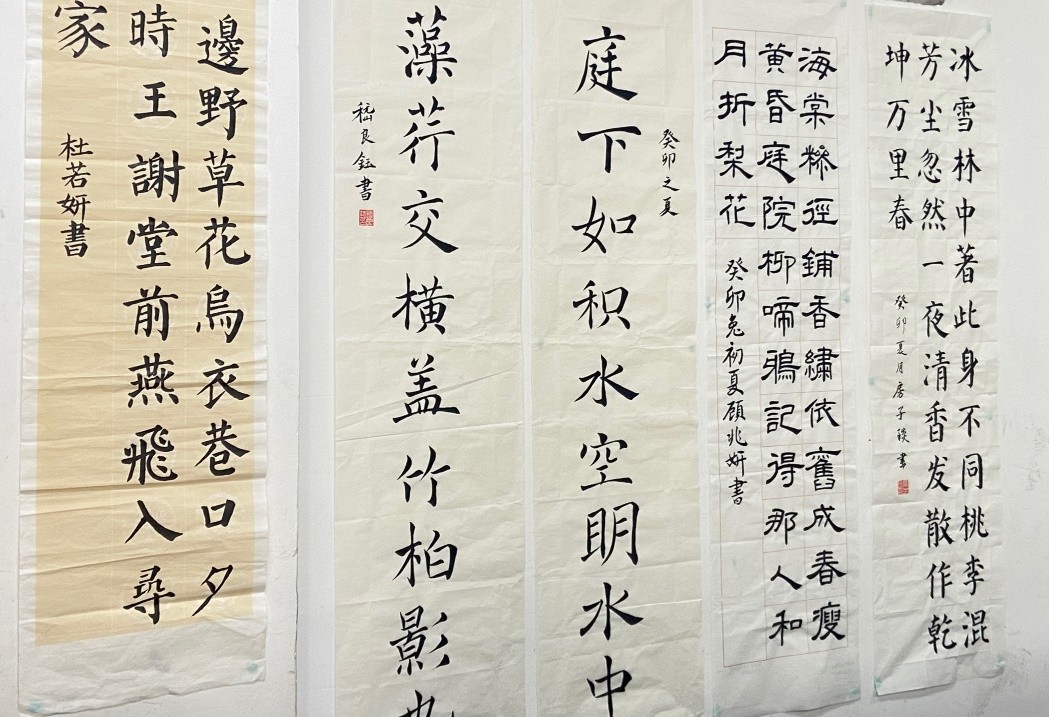 冰雪林中著此身不同桃李混
芳尘忽然一夜清香发散作乾
坤万里春
癸卯夏月房子琰書
海棠糁徑鋪香繡依舊成春瘦
黄昏庭院柳啼鴉記得那人和
月折梨花
癸卯兔初夏顾兆妍書
癸卯之夏
庭下如积水空明水中
藻荇交横盖竹柏影也
嵇良鈺書
邊野草花烏衣巷口夕
時王謝堂前燕飛入尋
家
杜若妍書